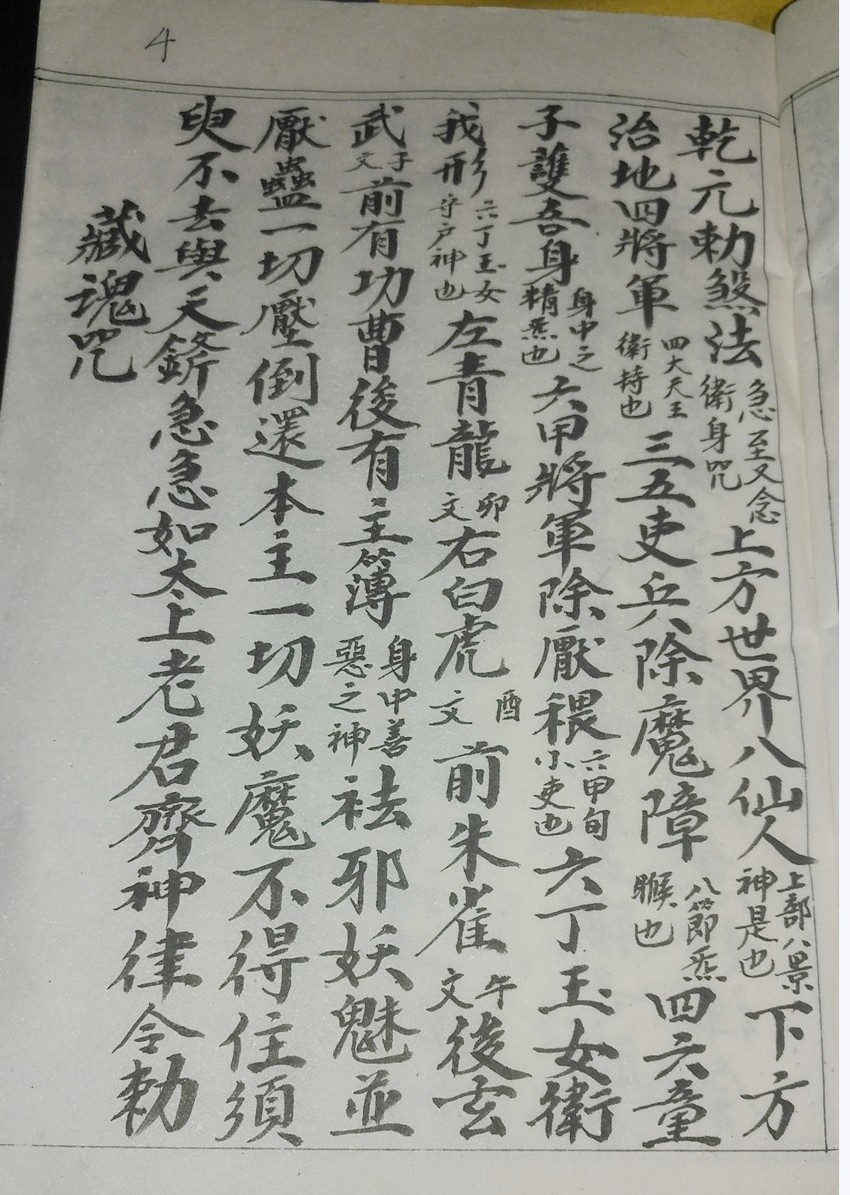 4
乾元勅煞法急至又念衛身咒上方世界八仙人上部八景神是也下方
治地四將軍四大天王衛持也三五吏兵除魔障八節炁也四六童
子護吾身身中之精炁也六甲將軍除厭穢六甲旬小吏也六丁玉女衛
我形六丁玉女守戶神也左青龍卯文右白虎酉文前朱雀午文後玄
武子文前有功曹後有主簿身中善惡之神祛邪妖魅並
厭蠱一切壓倒還本主一切妖魔不得住須
臾不去與天斷急急如太上老君齊神律令勅
藏魂咒